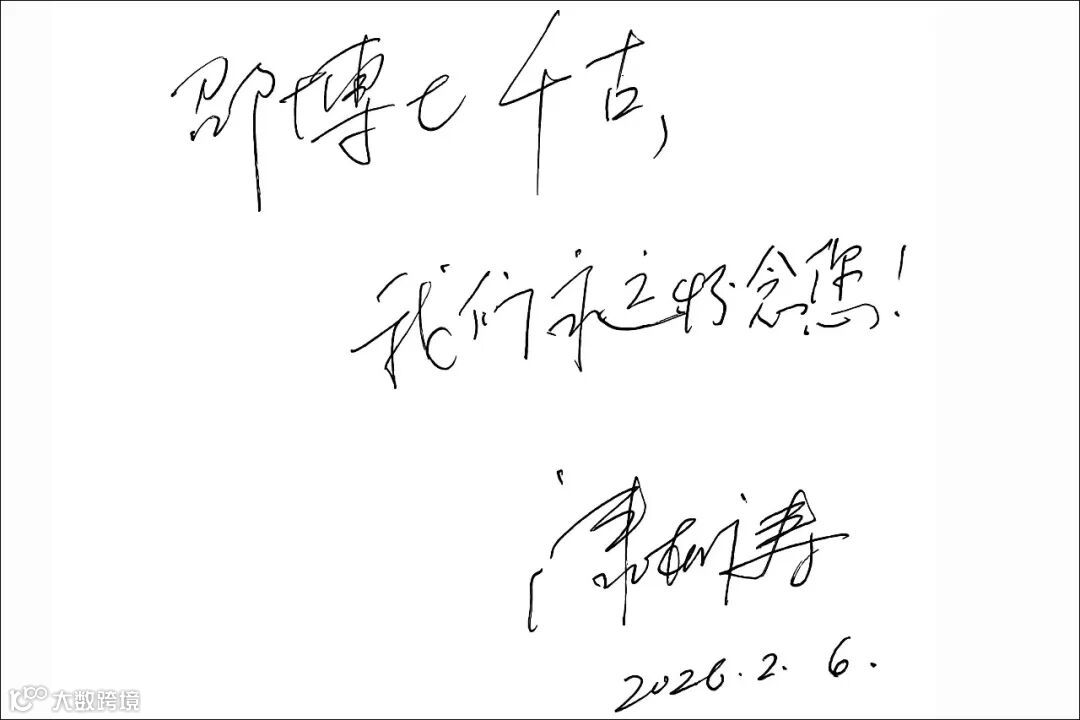 邵博士千古，
我们永远怀念您！
2026.2.6.
大数跨境